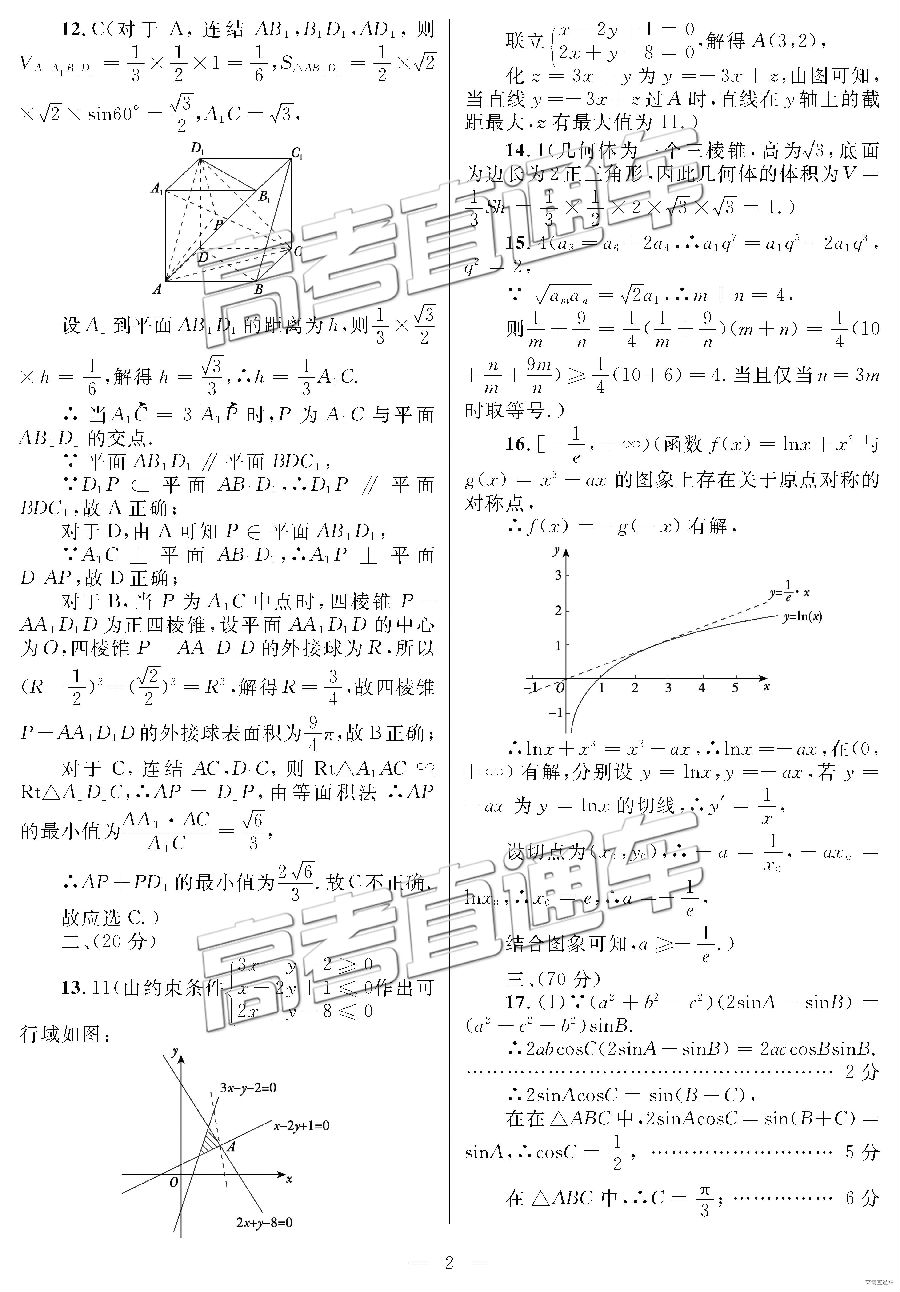 12.C(对于 A, 连结 AB₁,B₁D₁,AD₁, 则
= 1/3 × 1/2 × 1 = 1/6, = 1/2 × √2
× √2 × sin60° = √3/2, A₁C = √3,
D₁ C₁
A₁ B₁
P
D C
A B
设 A 到平面 AB₁D₁ 的距离为 h,则 1/3 × √3/2
× h = 1/6,解得 h = √3/3,∴h = 1/3 A C.
∴ 当 A₁C = 3 A₁P 时,P 为 A C 与平面
AB D 的交点.
∵ 平面 AB₁D₁ ∥ 平面 BDC₁,
∵D₁P 平面 AB D ,∴D₁P ∥ 平面
BDC₁,故 A 正确;
对于 D,由 A 可知 P ∈ 平面 AB₁D₁,
∵A₁C 平面 AB D ,∴A₁P ⊥ 平面
D AP,故 D 正确;
对于 B,当 P 为 A₁C 中点时,四棱锥 P
AA₁D₁D 为正四棱锥,设平面 AA₁D₁D 的中心
为 O,四棱锥 P AA D D 的外接球为 R,所以
(R 1/2)² (√2/2)² = R²,解得 R = 3/4,故四棱锥
P-AA₁D₁D 的外接球表面积为 9/4 π,故 B 正确;
对于 C, 连结 AC,D C, 则 Rt△A₁AC
Rt△A D C,∴AP = D P,由等面积法 ∴AP
的最小值为 AA₁·AC/A₁C = √6/3,
∴AP PD₁ 的最小值为 2√6/3. 故 C 不正确.
故应选 C.)
二、(20 分)
13.11(由约束条件 {3x y 2 ≥ 0 x-2y+1 ≤ 0 2x y 8 ≤ 0 作出可
行域如图:
y
3x-y-2=0
x-2y+1=0
A
O x
2x+y-8=0
联立 {x 2y 1 = 0 2x+y 8 = 0 ,解得 A(3,2),
化 z = 3x y 为 y =-3x z,由图可知,
当直线 y =-3x z 过 A 时,直线在 y 轴上的截
距最大,z 有最大值为 11.)
14.1(几何体为一个三棱锥,高为√3,底面
为边长为 2 正三角形,因此几何体的体积为 V =
1/3 Sh = 1/3 × 1/2 × 2 × √3 × √3 = 1.)
15.4(
q² 2,
∵ √(aₘaₙ) = √2a₁,∴m n = 4.
则 1/m 9/n = 1/4(1/m 9/n)(m+n) = 1/4(10
n/m + 9m/n) ≥ 1/4(10+6) = 4. 当且仅当 n = 3m
时取等号.)
16.[ 1/e, ∞)(函数 f(x) = lnx + x² 与
g(x) = x² - ax 的图象上存在关于原点对称的
对称点,
∴f(x) = -g(-x) 有解,
y
3
2
1
-1 O 1 2 3 4 5 x
-1
y=1/e·x
y=ln(x)
∴lnx + x² = x² - ax,∴lnx =-ax,在(0,
+∞) 有解,分别设 y = lnx,y =-ax,若 y =
ax 为 y = lnx 的切线,∴y′ = 1/x,
设切点为(x₀,y₀),∴-a = 1/x₀,-ax₀ =
lnx₀,∴x₀ = e,∴a = - 1/e,
结合图象可知,a ≥- 1/e.)
三、(70 分)
17.(1)∵(a² + b² c²)(2sinA sinB) =
(a² c² b²)sinB.
∴2abcosC(2sinA-sinB) = 2accosBsinB,
…………………………………………… 2 分
∴2sinAcosC = sin(B C),
在在△ABC 中,2sinAcosC = sin(B+C) =
sinA,∴cosC = 1/2, ……………………… 5 分
在△ABC 中,∴C = π/3; ……………… 6 分
2
高考直通车
高考直通车